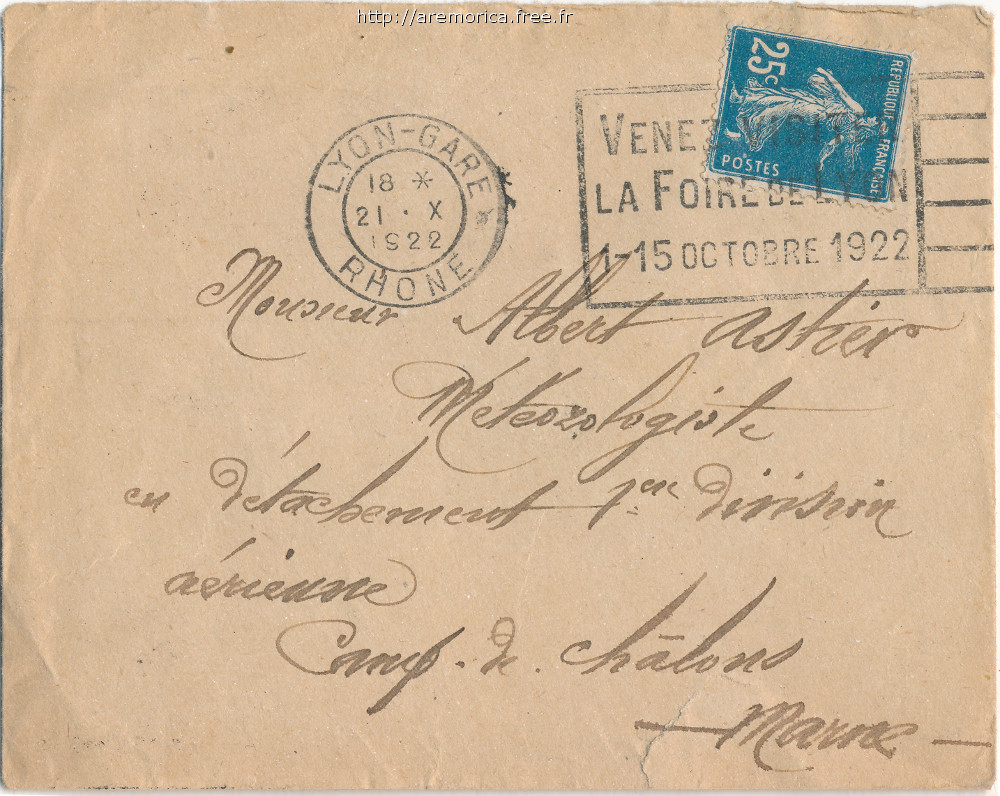 http://aremorica.free.fr
REPUBLIQUE FRANCAISE
25c
POSTES
LYON-GARE
18 *
21 · X
1922
RHONE
VENEZ
LA FOIRE DE LYON
1-15 OCTOBRE 1922
Monsieur Albert Astier
Météorologiste
en détachement 1ère division
aérienne
Camp de Châlons
Marne